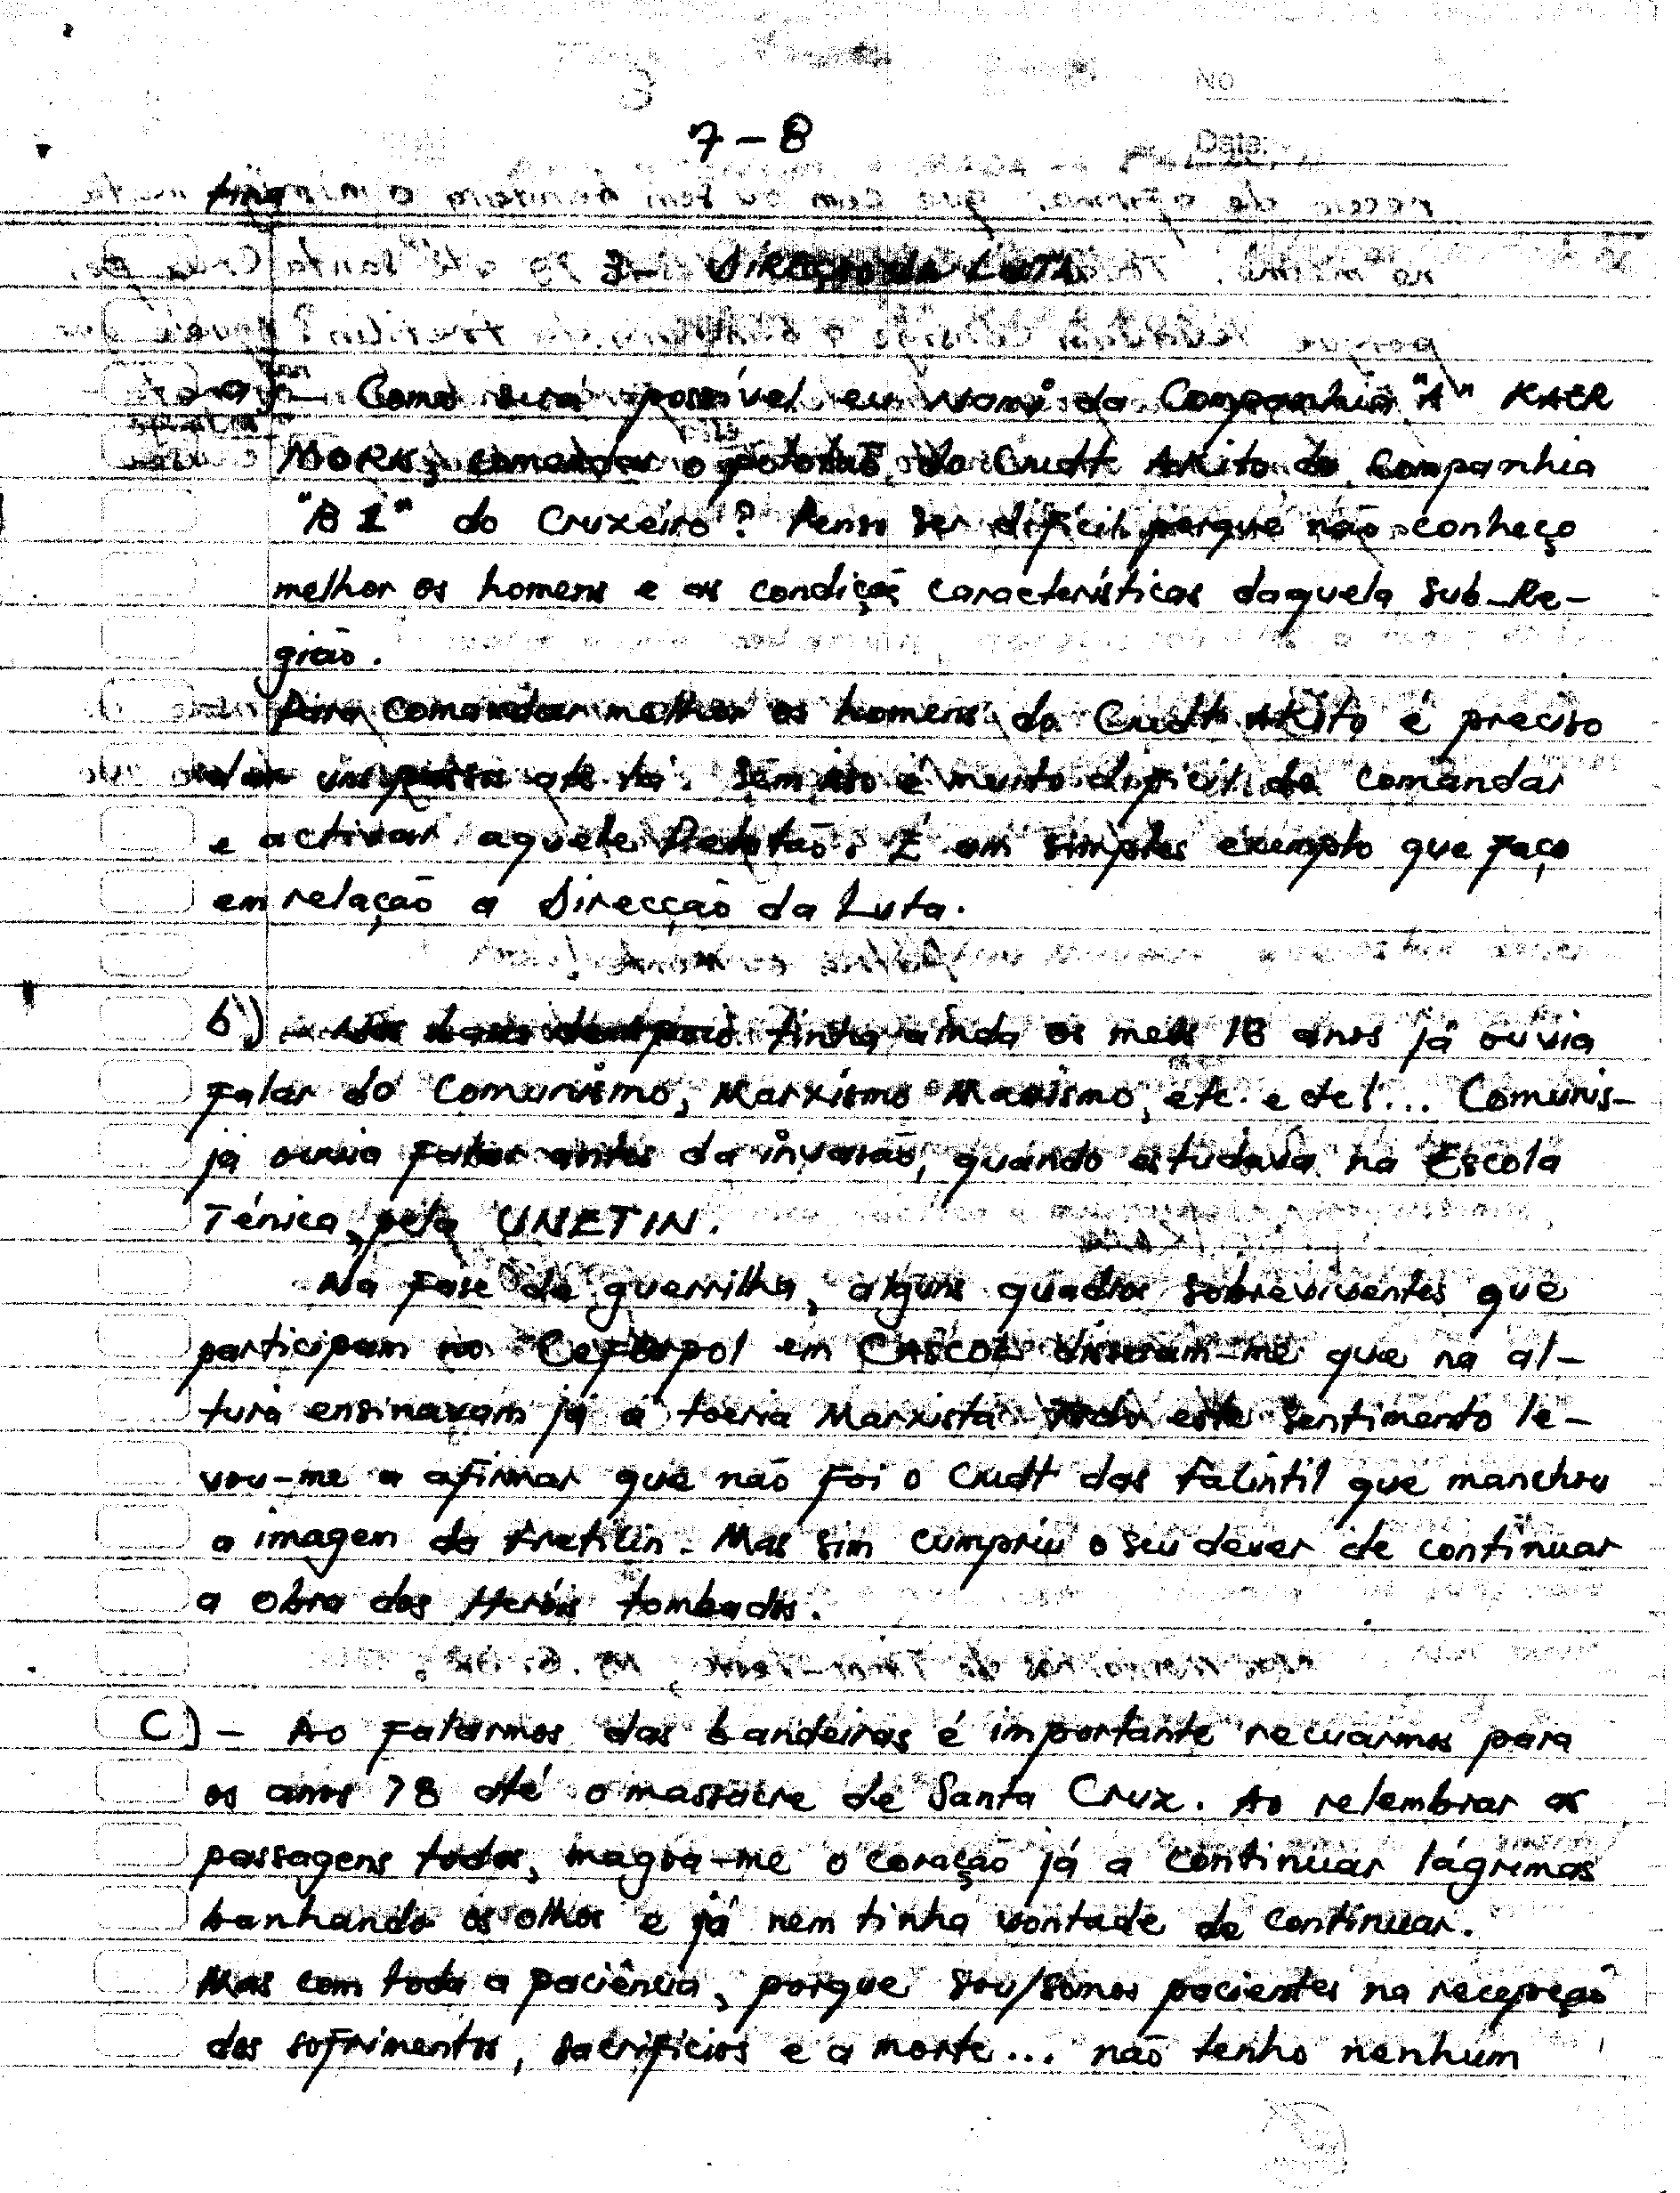 No
7-8
Date:
3- Direcção da Luta
a) - Como será possível eu Nomi da Companhia "A" KAER
MORK, comandar o pelotão do Cmdt AKito da Companhia
"B 1" do Cruxeiro? Penso ser difícil porque não conheço
melhor os homens e as condições características daquela Sub-Re-
gião.
Para comandar melhor os homens do Cmdt AKito é preciso
dar um passo até lá. Sem isto é muito difícil de comandar
e activar aquele Pelotão. É um simples exemplo que faço
em relação a Direcção da Luta.
b) - tinha ainda os meus 18 anos já ouvia
falar do Comunismo, Marxismo Maoismo, etc. e etc!... Comunis-
já ouvia falar antes da invasão, quando estudava na Escola
Ténica, pela UNETIN.
Na fase de guerrilha, alguns quadros sobreviventes que
participam no Ceforpol em disseram-me que na al-
tura ensinavam já a toeria Marxista todo este sentimento le-
vou-me a afirmar que não foi o Cmdt das Falintil que manchou
a imagem da Fretilin. Mas sim cumpriu o seu dever de continuar
a obra dos Heróis tombados.
C) - Ao falarmos das bandeiras é importante recuarmos para
os anos 78 até o massacre de Santa Crux. Ao relembrar as
passagens todas, magoa-me o coração já a continuar lágrimas
banhando os olhos e já nem tinha vontade de continuar.
Mas com toda a paciência, porque sou/somos pacientes na recepção
dos sofrimentos, sacrifícios e a morte... não tenho nenhum